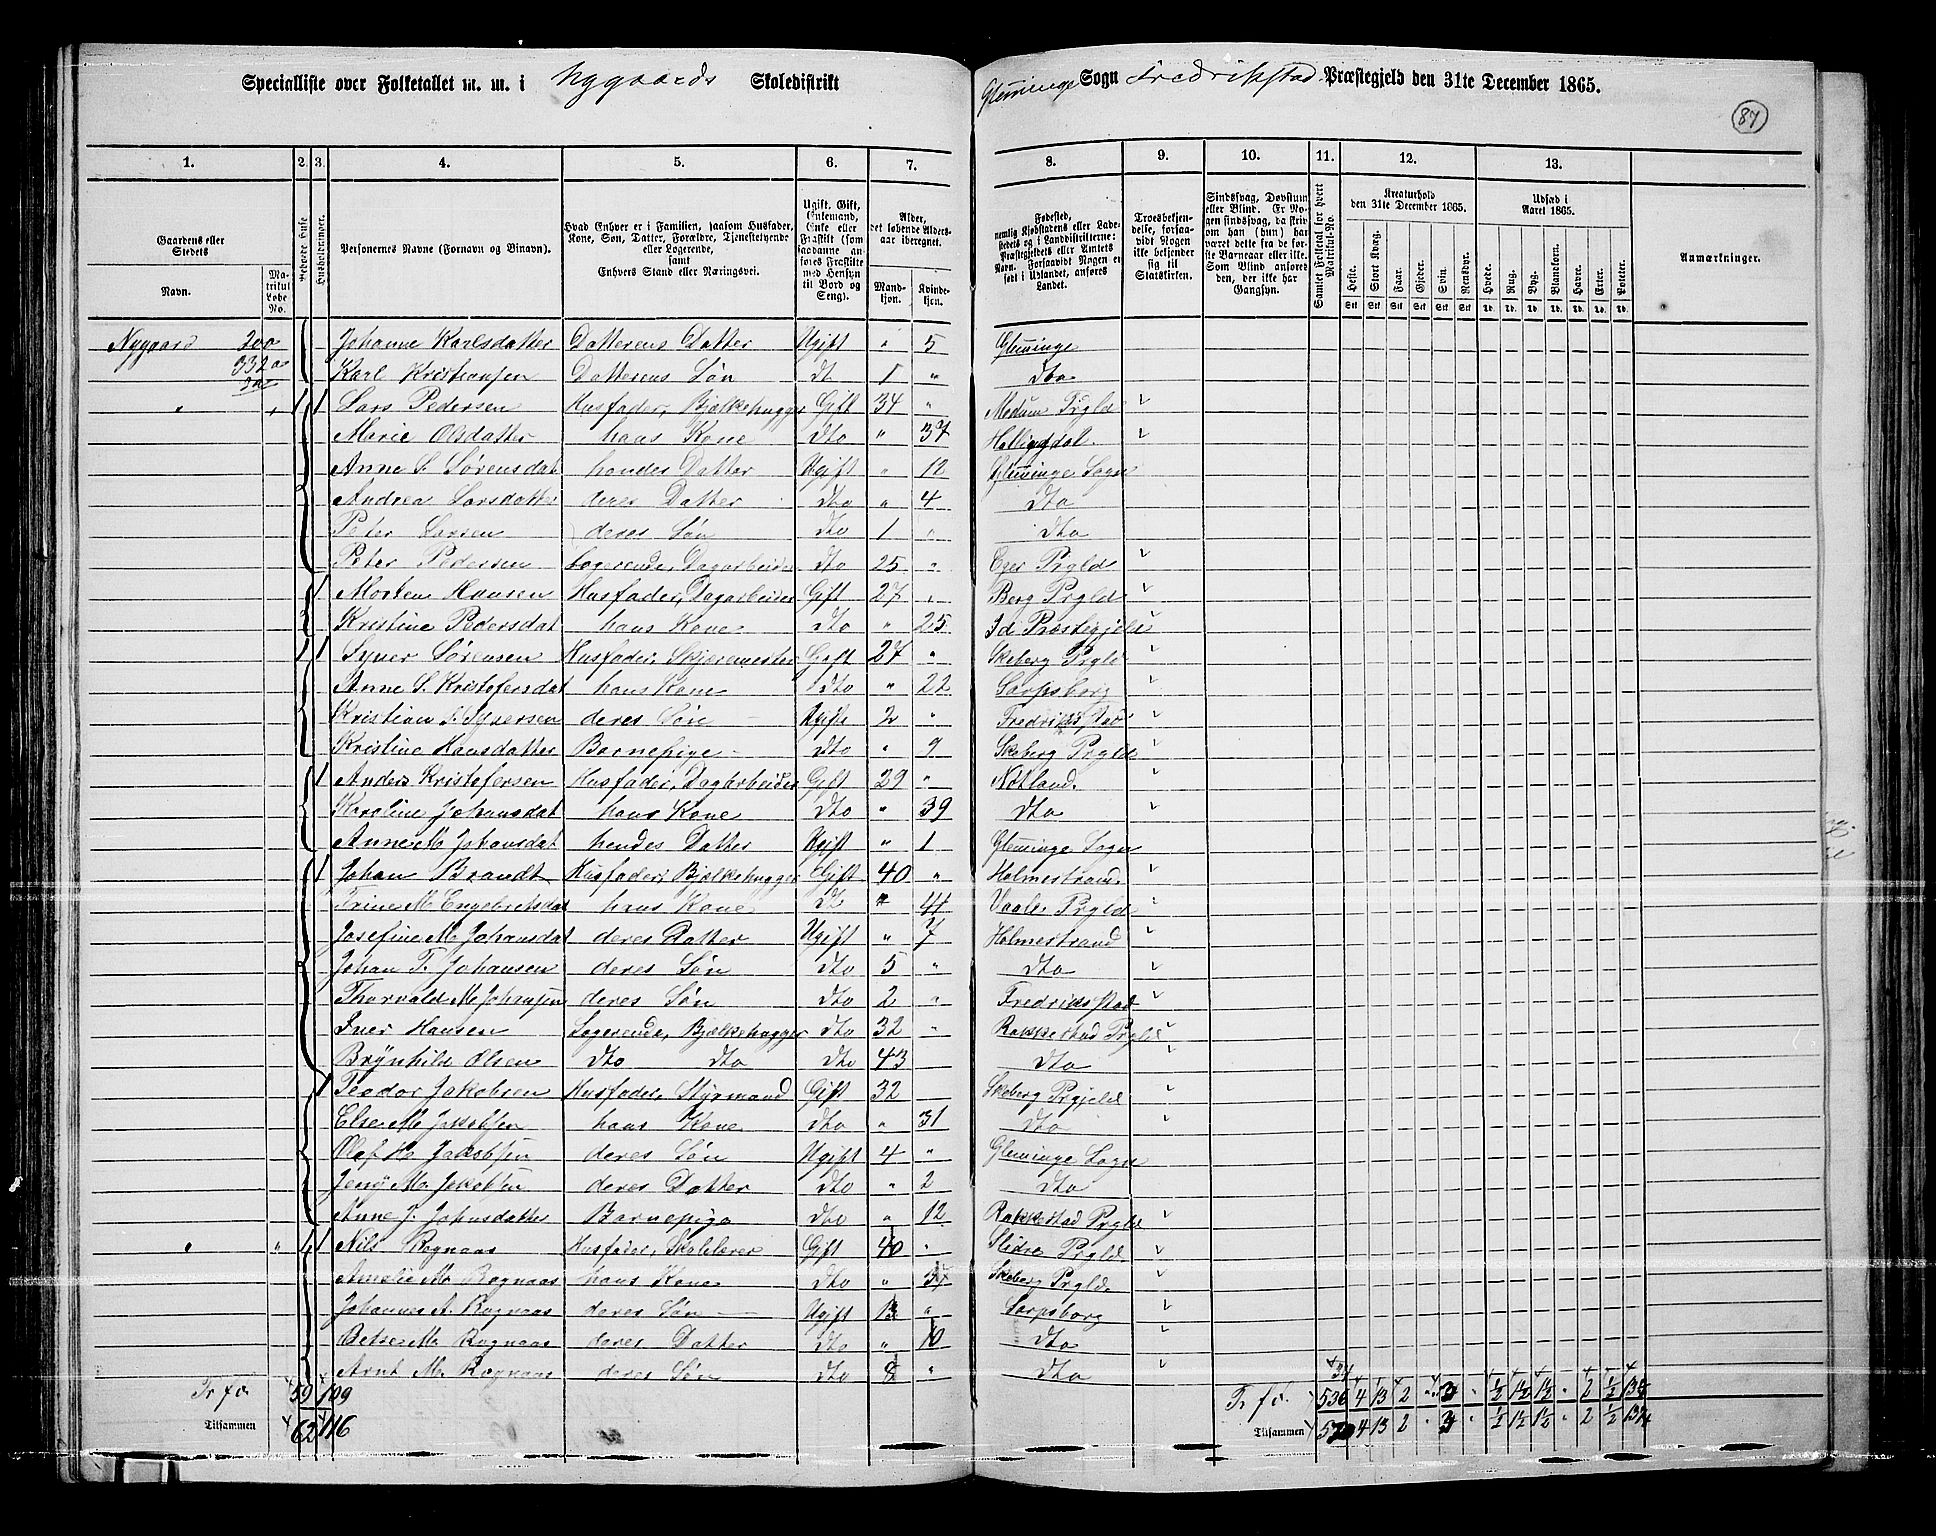 Specialliste over Folketallet m. m. i Nygaards Skoledistrikt Glemminge Sogn Fredrikstad Præstegjeld den 31te December 1865.
87
1. 2. 3. 4. 5. 6. 7. 8. 9. 10. 11. 12. 13.
Gaardens eller Stedets
Navn.
Matrikul Løbe No.
Beboede Huse
Husholdninger.
Personernes Navne (Fornavn og Binavn).
Hvad Enhver er i Familien, saasom Husfader, Kone, Søn, Datter, Forældre, Tjenestetyende eller Logerende, samt Enhvers Stand eller Næringsvei.
Ugift, Gift, Enkemand, Enke eller Fraskilt (som saadanne anføres Fraskilte med Hensyn til Bord og Seng).
Alder, det løbende Alders-aar iberegnet.
Mandkjøn.
Kvindekjøn.
Fødested, nemlig Kjøbstadens eller Ladestedets og i Landdistrikterne: Præstegjeldets og Amtets Navn. Forsaavidt Nogen er født i Udlandet, anføres Landet.
Troesbekjendelse, forsaavidt Nogen ikke bekjender sig til Statskirken.
Sindssvag, Døvstum eller Blind. Er Nogen sindssvag, da skrives om han (hun) har været dette fra de første Barneaar eller ikke. Som Blind anføres den, der ikke har Gangsyn.
Samlet Folketal for hvert Matrikul-No.
Kreaturhold den 31te December 1865.
Heste. Stort Kvæg. Faar. Gjeder. Svin. Rensdyr.
Udsæd i Aaret 1865.
Hvede. Rug. Byg. Blandkorn. Havre. Erter. Poteter.
Anmærkninger.
Nygaard 200 Johanne Karlsdatter Datterens Datter Ugift " 5 Glemminge
Karl Kristiansen Datterens Søn dt 1 " dto
" " 1 1 Lars Pedersen Husfader, Bjælkehugger Gift 34 " Modum Prgld
Marie Olsdatter hans Kone dto " 37 Hallingdal.
Anne S. Sørensdat hendes Datter Ugift " 12 Glemminge Sogn
Andrea Larsdatter deres Datter dto " 4 dto
Peter Larsen deres Søn dto 1 " dto
Peter Pedersen Logerende, Dagarbeider dto 25 " Eger Prgld
1 Morten Hansen Husfader, Dagarbeider Gift 27 " Berg Prgld
Kristine Pedersdat hans Kone dto " 25 Id Præstegjeld
1 1 Syver Sørensen Husfader, Skjæremester Gift 27 " Skeberg Prgld
Anne S. Kristofersdat hans Kone dto " 22 Sarpsborg
Kristian S. Syversen deres Søn Ugift 2 " Fredrikstad
Kristine Hansdatter Barnepige dto " 9 Skeberg Prgld
1 Anders Kristofersen Husfader, Dagarbeider Gift 29 "
Karoline Johansdat hans Kone dto " 39 dto
Anne M. Johansdat hendes Datter Ugift " 1 Glemminge Sogn
1 Johan Brandt Husfader, Bjælkehugger Gift 40 " Holmestrand.
Trine M Engebretsdat hans Kone dto " 44 Vaale Prgld
Josefine M. Johansdat deres Datter Ugift " 7 Holmestrand
Johan T. Johansen deres Søn dto 5 " dto
Thorvald M. Johansen deres Søn dto 2 " Fredrikstad
Iver Hansen Logerende, Bjælkehugger dto 32 " Rakkestad Prgld
Brynhild Olsen dto dto dto 43 dto
1 Teodor Jakobsen Husfader, Styrmand Gift 32 Skeberg Prgjeld
Else M Jakobsen hans Kone dto " 31 dto
Olaf H. Jakobsen deres Søn Ugift 4 " Glemminge Sogn
Jenny M. Jakobsen deres Datter dto " 2 dto
Anne J. Johnsdatter Barnepige dto " 12 Rakkestad Prgld
" " 1 1 Nils Rognaas Husfader, Skolelærer Gift 40 " Slidre Prgld
Amalie M. Rognaas hans Kone dto " 34 Skeberg Prgld.
Johannes A. Rognaas deres Søn Ugift 13 " Sarpsborg
Betsi M. Rognaas deres Datter dto " 10 dto
Arnt M. Rognaas deres Søn dto 8 " dto
34
Tr. for. 59 109 Tr. for. 536 4 13 2 " 3 " ½ 1½ 1½ " 2 ½ 13¾
Tilsammen 62 116 Tilsammen 570 4 13 2 " 3 " ½ 1½ 1½ " 2 ½ 13¾